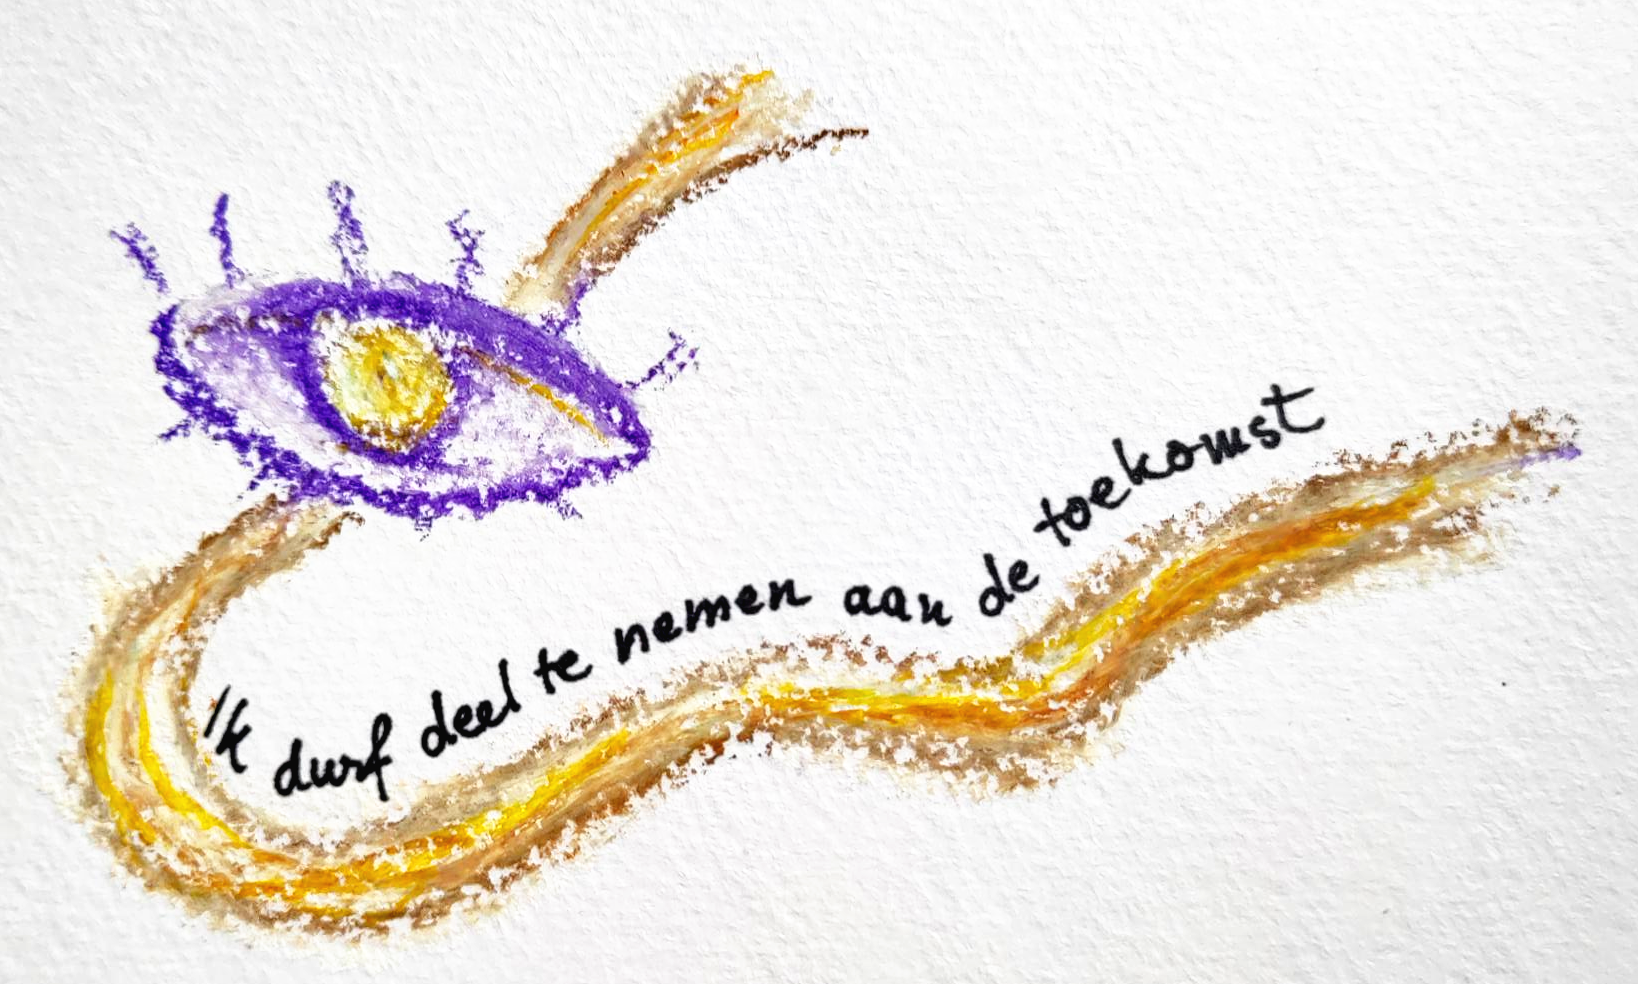 Ik durf deel te nemen aan de toekomst